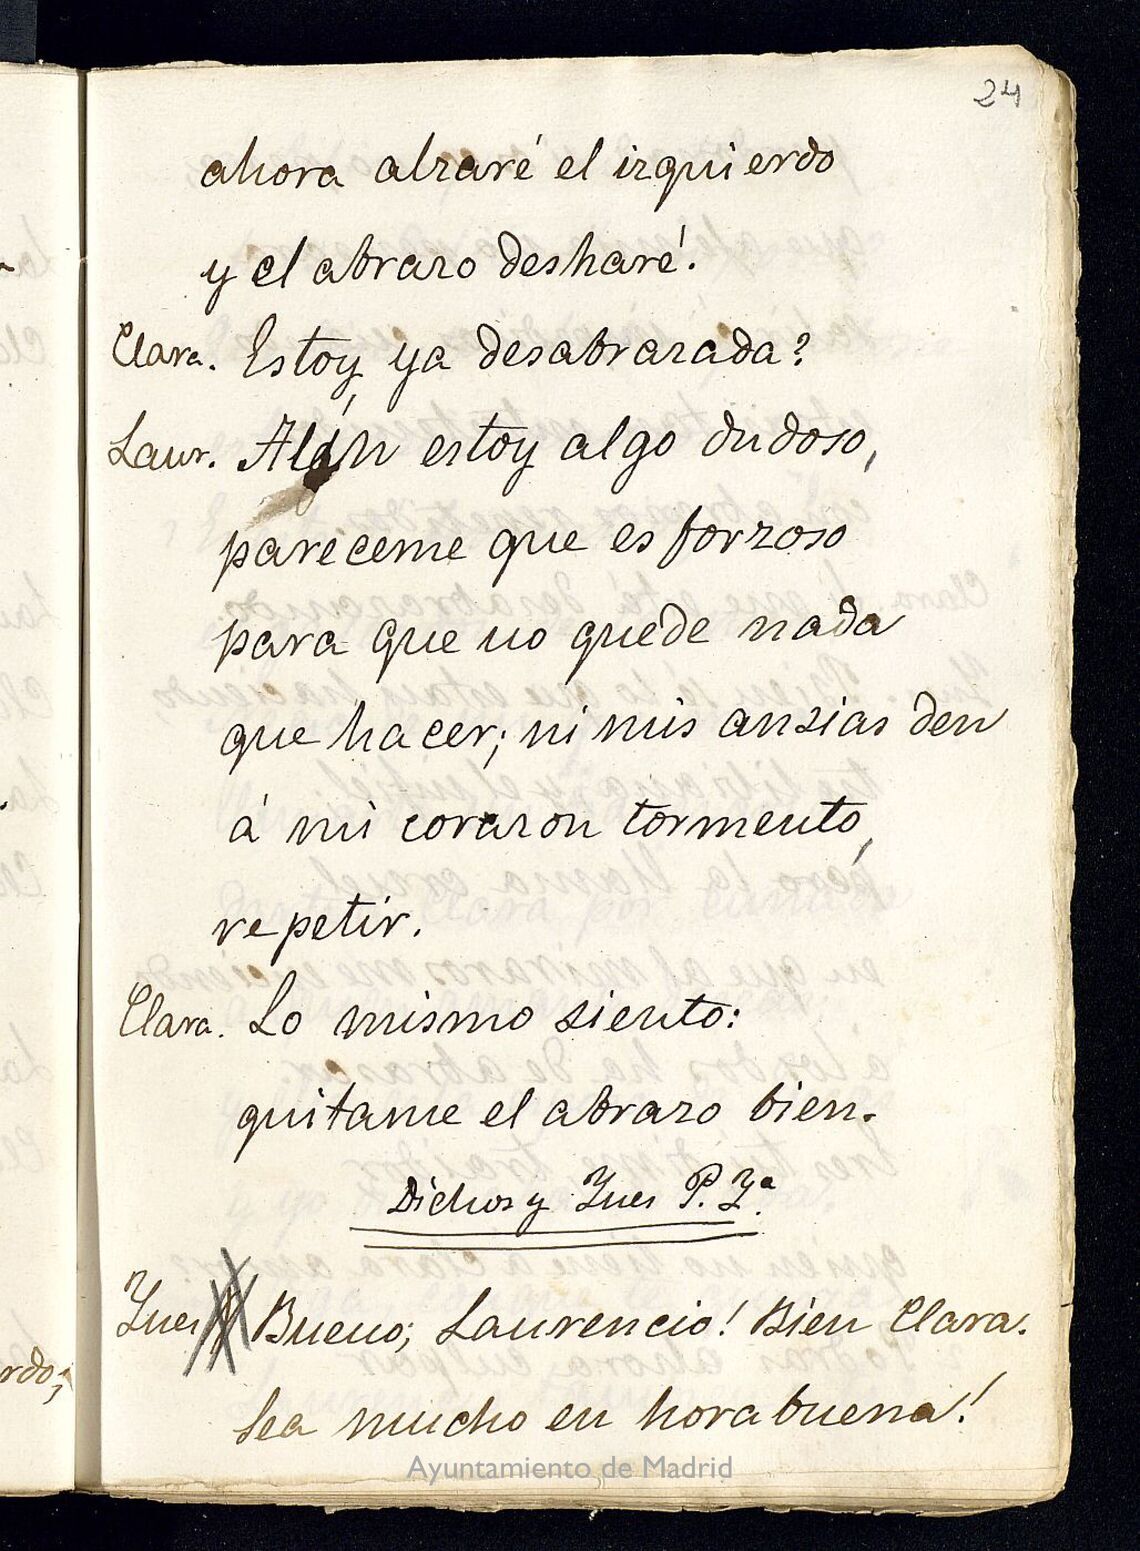 24
ahora alzaré el izquierdo
y el abrazo desharé.
Clara. Estoy ya desabrazada?
Laur. Aún estoy algo dudoso,
pareceme que es forzoso
para que no quede nada
que hacer; ni mis ansias den
á mi corazon tormento,
repetir.
Clara. Lo mismo siento:
quitame el abrazo bien.
Dichos y Ines P. Yª.
Ines Bueno; Laurencio! Bien Clara.
Sea mucho en hora buena!
rdo;
Ayuntamiento de Madrid